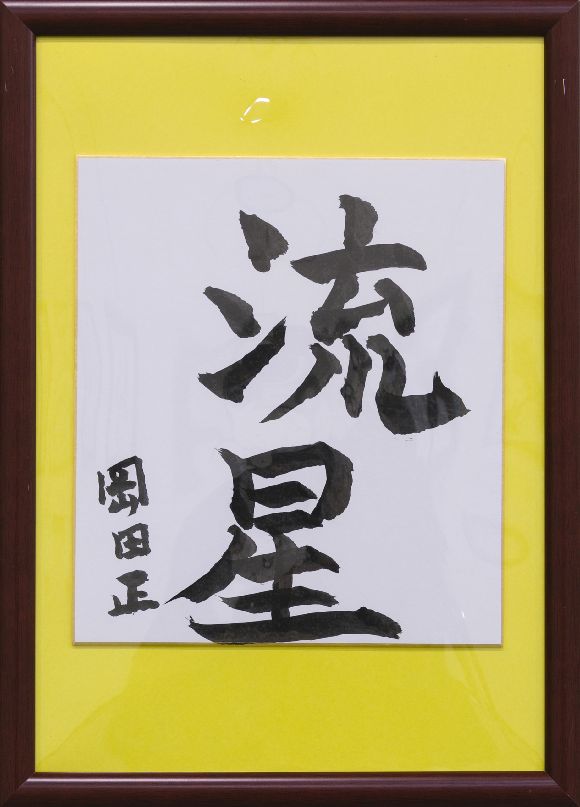 流星
岡田正